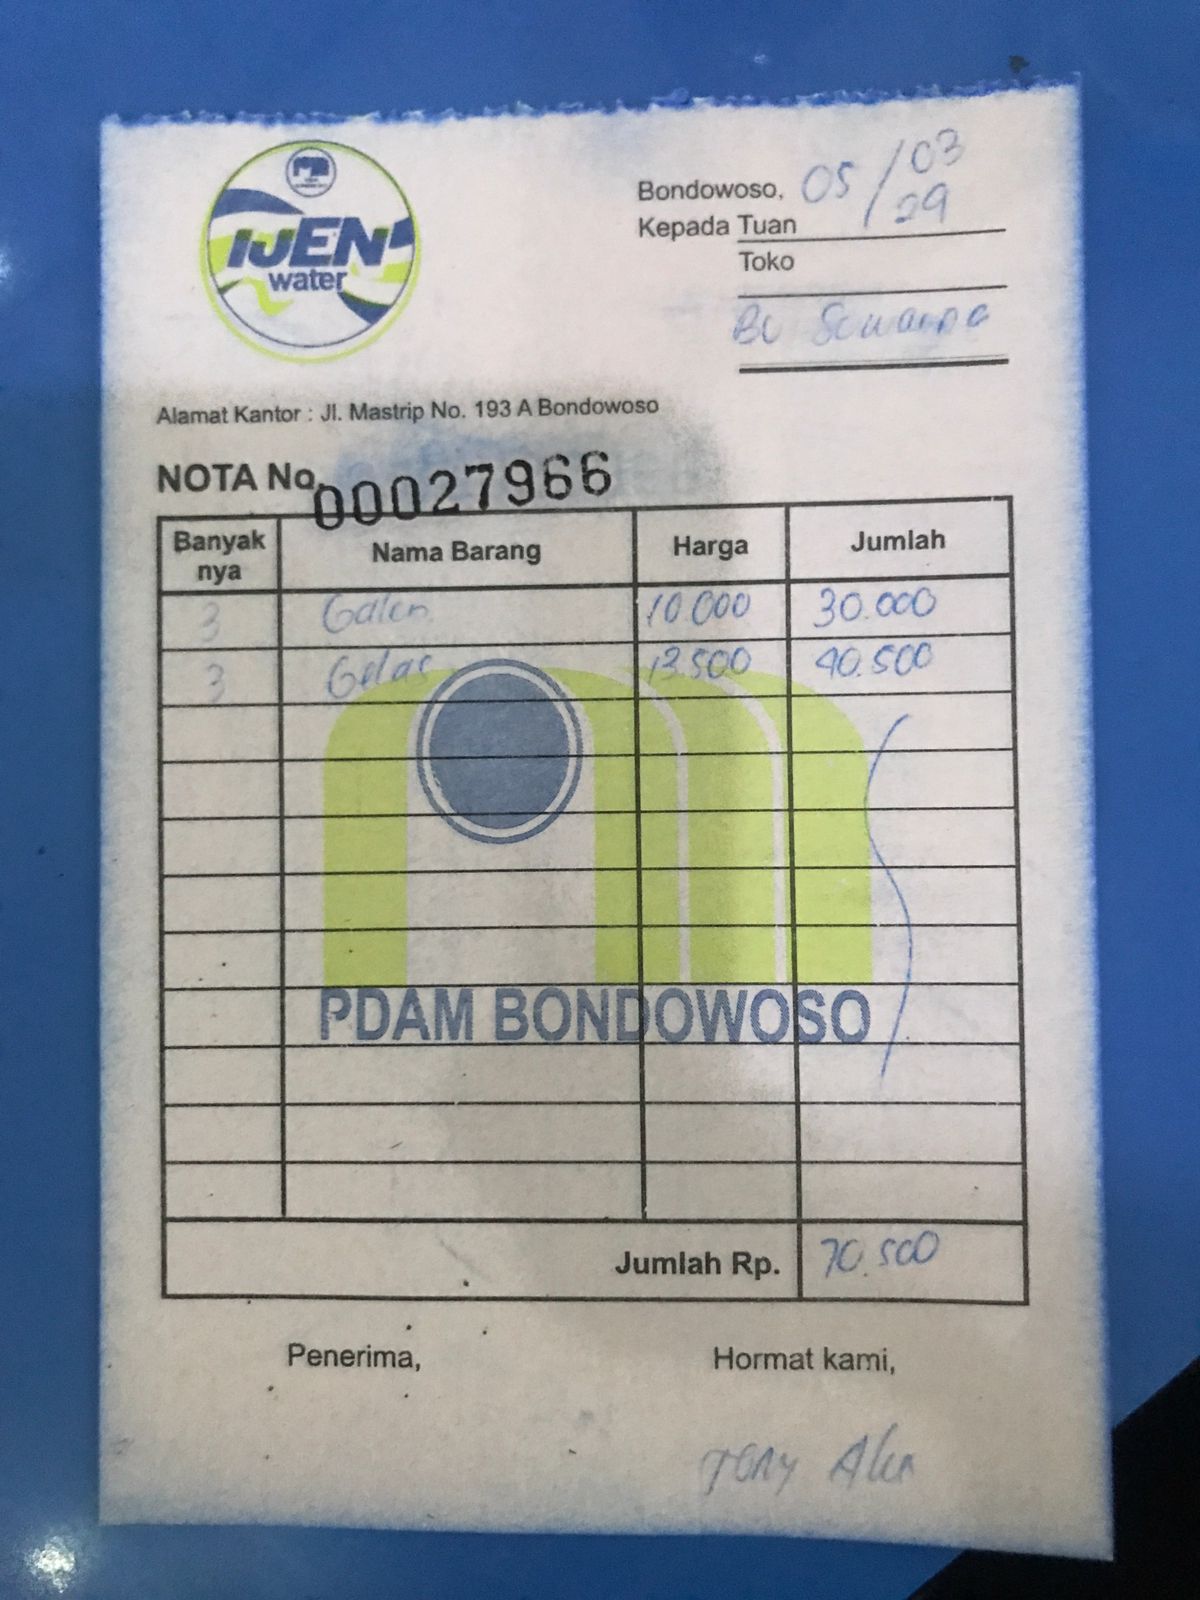 IJEN
water
Bondowoso, 05/03
29
Kepada Tuan
Toko
Bu
Alamat Kantor : Jl. Mastrip No. 193 A Bondowoso
NOTA No. 00027966
Banyak nya Nama Barang Harga Jumlah
3 Galon 10.000 30.000
3 Gelas 13.500 40.500
PDAM BONDOWOSO
Jumlah Rp. 70.500
Penerima, Hormat kami,
Tony